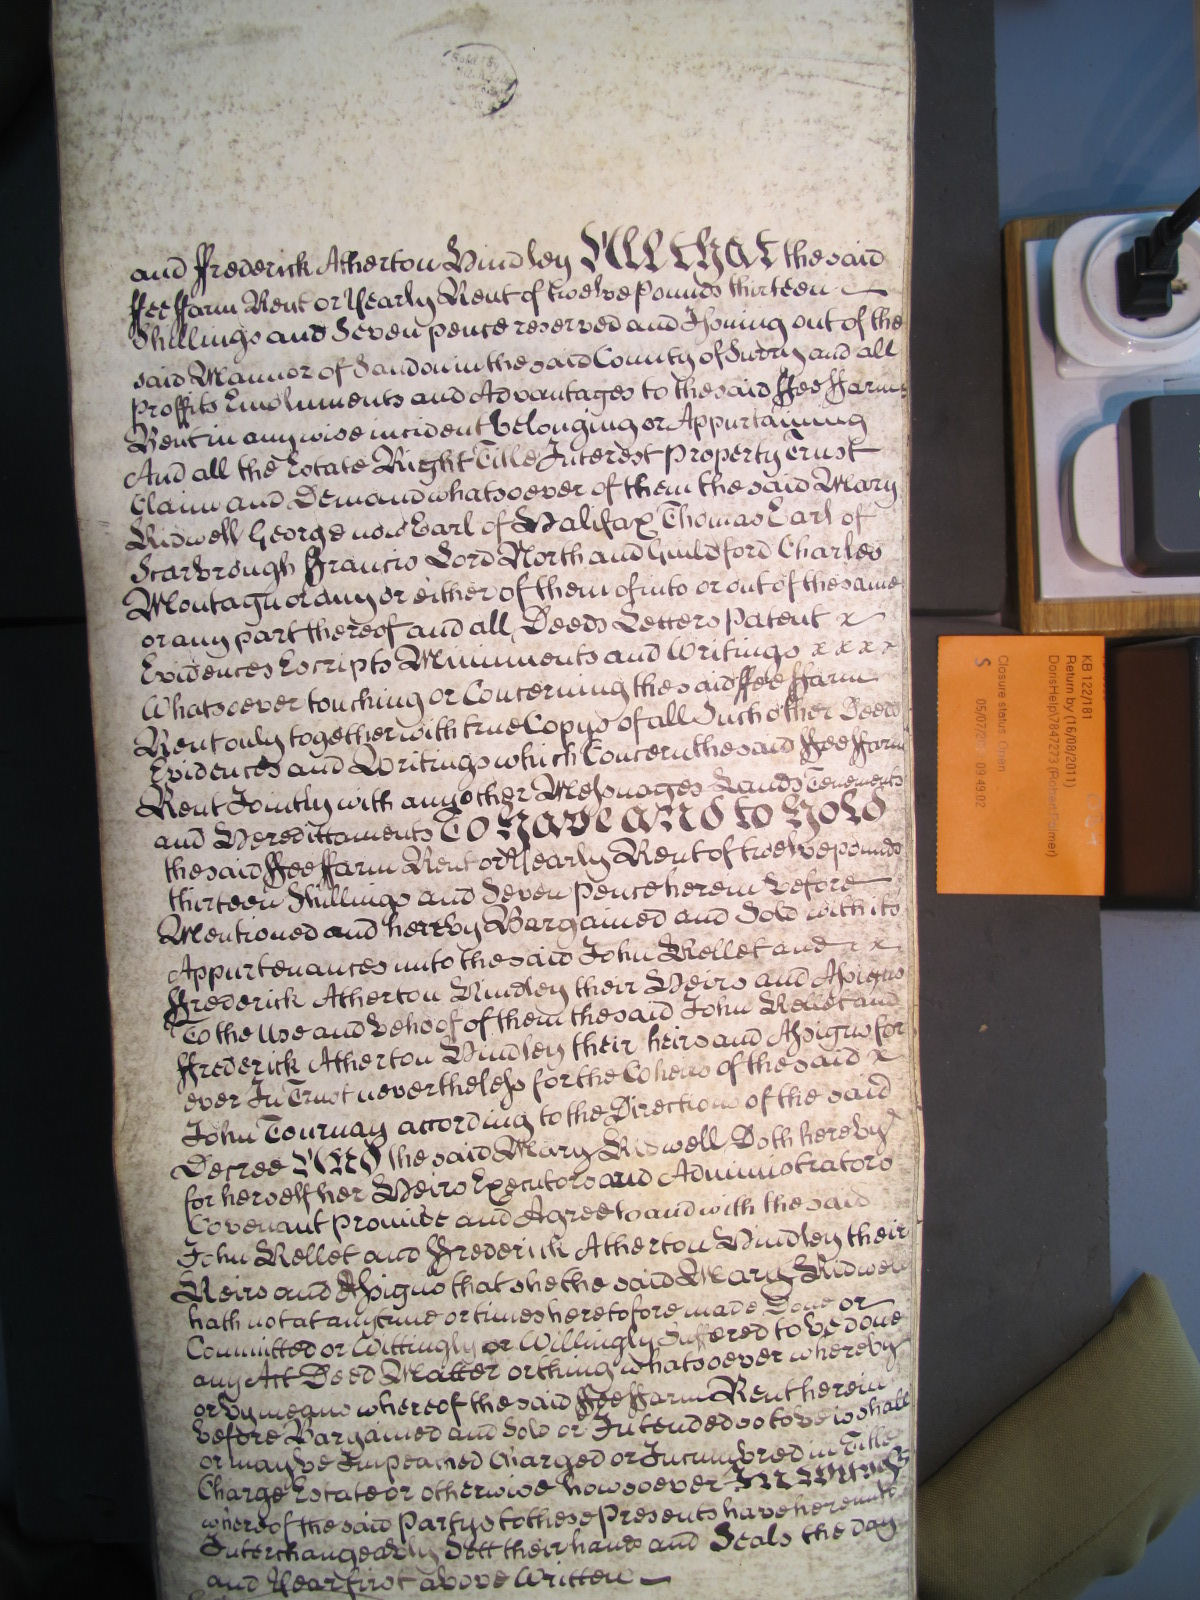 and Frederick Atherton Hindley All that the said
ffee ffarm Rent or Yearly Rent of twelve pounds thirteen
Shillings and Seven pence reserved and Issuing out of the
said Mannor of Sandon in the said County of Surry and all
Proffits Emoluments and Advantages to the said ffee ffarm
Rent in any wise incident belonging or Appurtaining
And all the Estate Right Title Interest Property Trust
Claim and Demand whatsoever of them the said Mary
Ridwell George now Earl of Halifax Thomas Earl of
Scarbrough Francis Lord North and Guildford Charles
Montagu or any or either of them of into or out of the same
or any part thereof and all Deeds Letters Patent x
Evidences Escripts Miniments and Writings x x x x
Whatsoever touching or Concerning the said ffee ffarm
Rent only together with true Copys of all Such other Deeds
Evidences and Writings which Concern the said ffee ffarm
Rent Jointly with any other Messuages Lands Tenements
and Hereditaments To have and to hold
the said ffee ffarm Rent or Yearly Rent of twelve pounds
thirteen Shillings and Seven pence herein before
Mentioned and hereby Bargained and Sold with its
Appurtenances unto the said John Kellet and x x
Frederick Atherton Hindley their Heirs and Assigns
To the Use and behoof of them the said John Kellet and
Frederick Atherton Hindley their heirs and Assigns for
ever In Trust nevertheless for the Coheirs of the said x
John Tournay according to the Directions of the said
Decree And the said Mary Ridwell Doth hereby
for herself her Heirs Executors and Administrators
Covenant promise and Agree to and with the said
John Kellet and Frederick Atherton Hindley their
Heirs and Assigns that she the said Mary Ridwell
hath not at any time or times heretofore made Done or
Committed or Wittingly or Willingly Suffered to be done
any Act Deed Matter or thing whatsoever whereby
or by means whereof the said ffee ffarm Rent herein
before Bargained and Sold or Intended so to be is shall
or may be Impeached Charged or Incumbred in Title
Charge Estate or otherwise howsoever In Witness
whereof the said Partys to these Presents have hereunto
Interchangeably Sett their hands and Seals the day
and Year first above Written
KB 122/181
Return by (16/08/2011)
DorisHelp\7847273 (Robert Palmer)
Closure status: Open
S 09:49:02